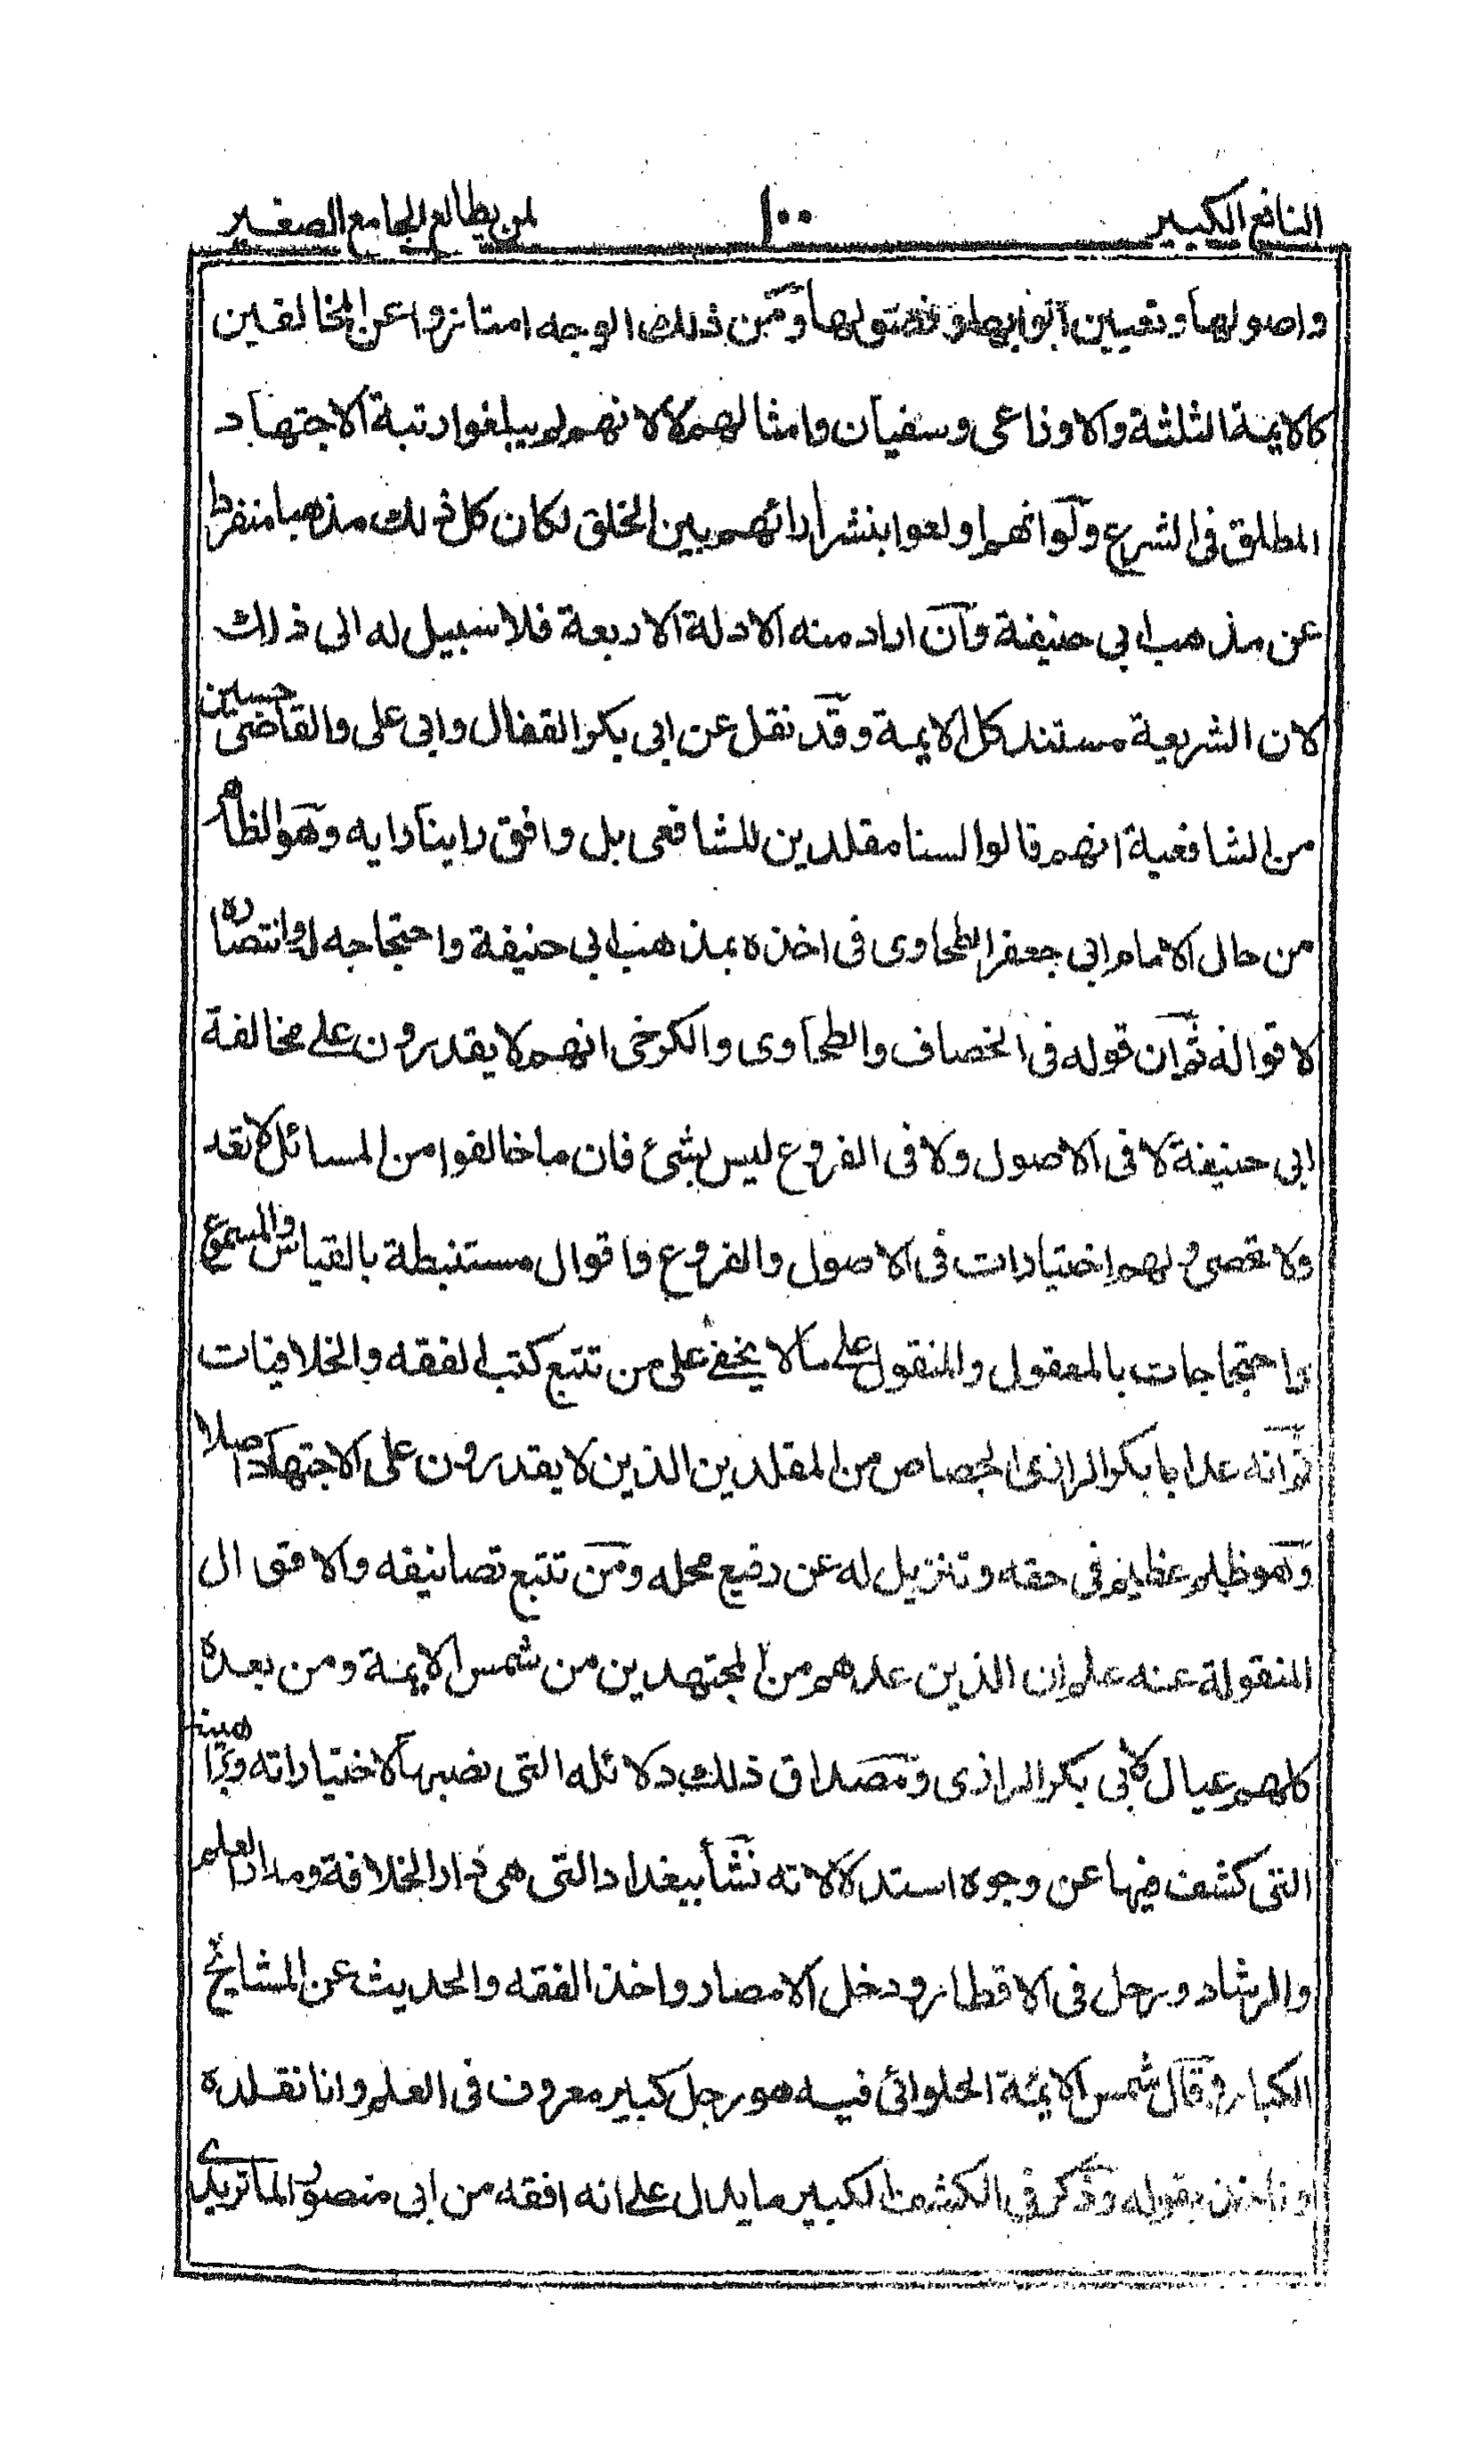 النافع الكبير ١٠٠ لمن يطالع الجامع الصغير
واصولها وتعيين ابوابها وفصولها ومن ذلك الوجه امتازوا عن المخالفين
كالايمة الثلثة والاوزاعى وسفيان وامثالهم لا لانهم لم يبلغوا رتبة الاجتهاد
المطلق فى الشرع ولو انهم اولعوا بنشر ارائهم بين الخلق لكان كل ذلك مذهبا منفردا
عن مذهب ابى حنيفة وان اراد منه الادلة الاربعة فلا سبيل له الى ذلك
لان الشريعة مستند كل الايمة وقد نقل عن ابى بكر القفال وابى على والقاضى حسين
من الشافعية انهم قالوا لسنا مقلدين للشافعى بل وافق راينا رايه وهو الظاهر
من حال الامام ابى جعفر الطحاوى فى اخذه بمذهب ابى حنيفة واحتجاجه له وانتصاره
لاقواله ثم ان قوله فى الخصاف والطحاوى والكرخى انهم لا يقدرون على مخالفة
ابى حنيفة لا فى الاصول ولا فى الفروع ليس بشئ فان ما خالفوا من المسائل لا تعد
ولا تحصى ولهم اختيارات فى الاصول والفروع واقوال مستنبطة بالقياس والمسموع
واحتجاجات بالمعقول والمنقول على ما لا يخفى على من تتبع كتب الفقه والخلافيات
ثم انه عد ابا بكر الرازى الجصاص من المقلدين الذين لا يقدرون على الاجتهاد اصلا
وهو ظلم عظيم فى حقه وتنزيل له عن رفيع محله ومن تتبع تصانيفه والاقوال
المنقولة عنه علم ان الذين عدهم من المجتهدين من شمس الايمة ومن بعده
كلهم عيال لابى بكر الرازى ومصداق ذلك دلائله التى نصبها لاختياراته وبراهينه
التى كشف فيها عن وجوه استدلالاته نشأ ببغداد التى هى دار الخلافة ومدار العلم
والرشاد ورحل فى الاقطار ودخل الامصار واخذ الفقه والحديث عن المشايخ
الكبار وقال شمس الايمة الحلوائى فيه هو رجل كبير معروف فى العلم وانا نقلده
وناخذ بقوله وذكر فى الكشف الكبير ما يدل على انه افقه من ابى منصور الماتريدى